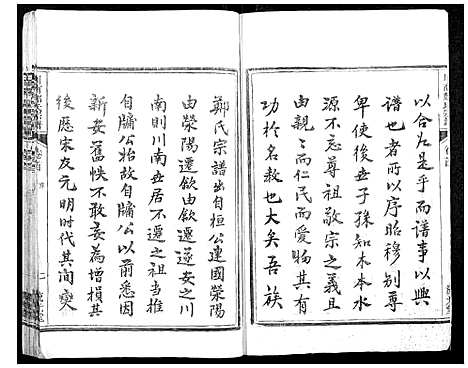 以合為是乎而譜事以興
譜也者所以序昭穆別尊
卑使後世子孫知本本水
源不忘尊祖敬宗之義且
由親親而仁民而愛物其有
功於名教也大矣吾族
鄭氏宗譜出自桓公建國滎陽
由滎陽遷歙由歙遷遂安之川
南則川南世居不遷之祖當推
自牖公始故自牖公以前悉因
新安舊帙不敢妄為增損其
後歷宋及元明時代其間變